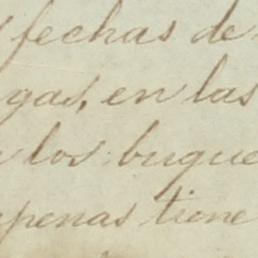 fechas de
gas, en las
los buque
apenas tiene